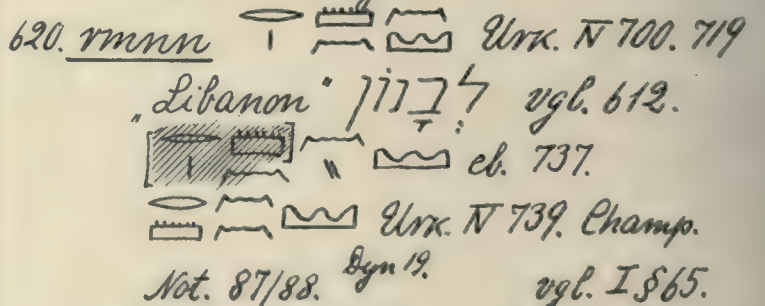 620. rmnn 𓂋𓏤 𓏠𓈖 𓈖𓈉 Urk. IV 700. 719
„Libanon“ לְבָנוֹן vgl. 612.
[𓂋𓏤 𓏠]𓈖 𓈖𓏭 𓈉 eb. 737.
𓂋𓏠 𓈖𓈖 𓈉 Urk. IV 739. Champ.
Not. 87/88. Dyn 19. vgl. I §65.